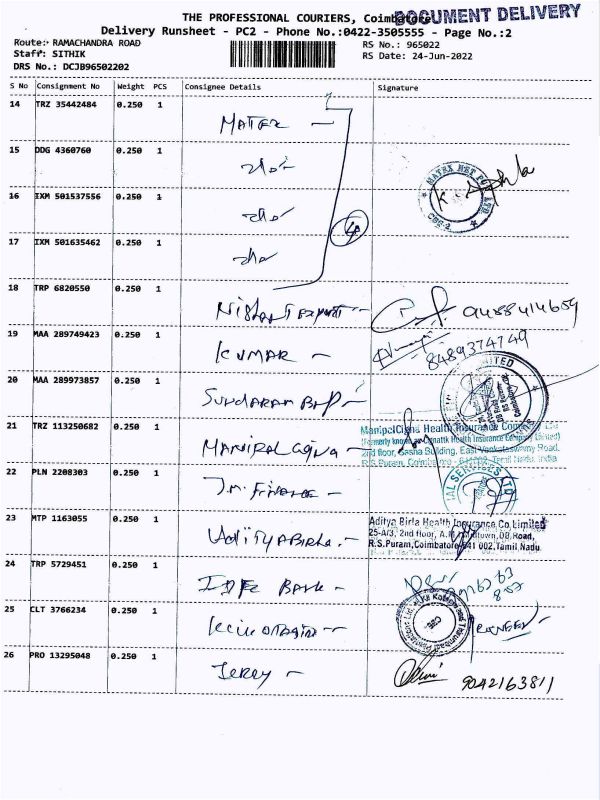 THE PROFESSIONAL COURIERS, Coimbatore
DOCUMENT DELIVERY
Delivery Runsheet - PC2 - Phone No.:0422-3505555 - Page No.:2
Route: RAMACHANDRA ROAD
RS No.: 965022
Staff: SITHIK
RS Date: 24-Jun-2022
DRS No.: DCJB96502202
S No Consignment No Weight PCS Consignee Details Signature
14 TRZ 35442484 0.250 1
15 DDG 4360760 0.250 1
16 IXM 501537556 0.250 1
17 IXM 501635462 0.250 1
4
MATEX NET PVT LTD
CBE-2
18 TRP 6820550 0.250 1
9488414659
19 MAA 289749423 0.250 1
KUMAR
8489374749
20 MAA 289973857 0.250 1
SUNDARAM
21 TRZ 113250682 0.250 1
MANIPAL CIGNA
ManipalCigna Health Insurance Company Ltd
(Formerly known as CignaTTK Health Insurance Company Limited)
2nd floor, Sasha Building, East Venkataswamy Road,
R.S.Puram, Coimbatore - Tamil Nadu, India
22 PLN 2208303 0.250 1
J.M. FINANCE
23 MTP 1163055 0.250 1
ADITYA BIRLA
Aditya Birla Health Insurance Co. Limited
25-A/3, 2nd floor, DB Road,
R.S.Puram, Coimbatore-641 002, Tamil Nadu
24 TRP 5729451 0.250 1
IDFC Bank
25 CLT 3766234 0.250 1
26 PRO 13295048 0.250 1
9042163811